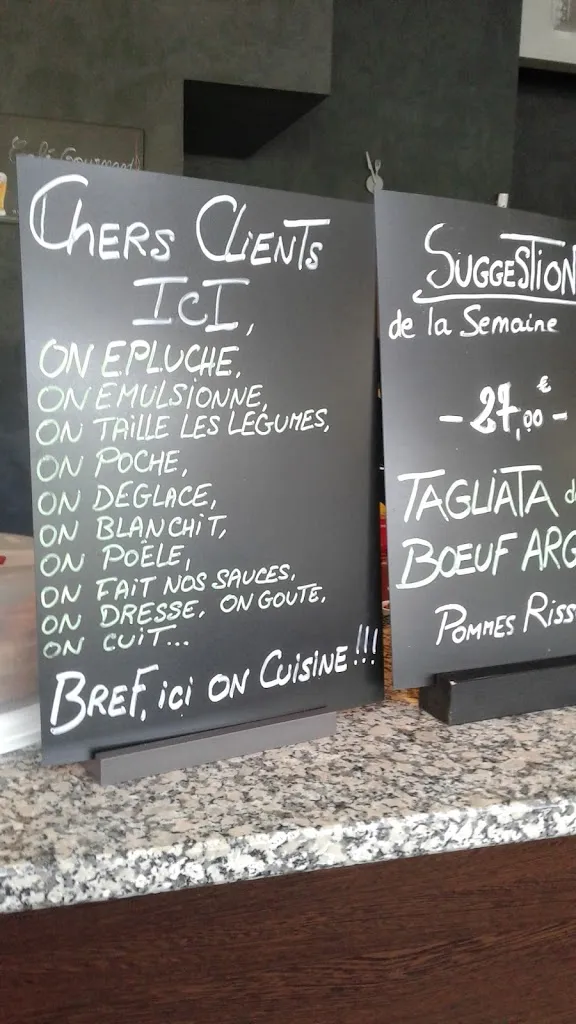 CHERS CLIENTS
ICI,
ON EPLUCHE,
ON EMULSIONNE,
ON TAILLE LES LEGUMES,
ON POCHE,
ON DEGLACE,
ON BLANCHIT,
ON POËLE,
ON FAIT NOS SAUCES,
ON DRESSE, ON GOUTE,
ON CUIT...
BREF, ici ON CUISINE!!!
SUGGESTION
de la Semaine
- 27,00€ -
TAGLIATA d
BŒUF ARG
POMMES RISS